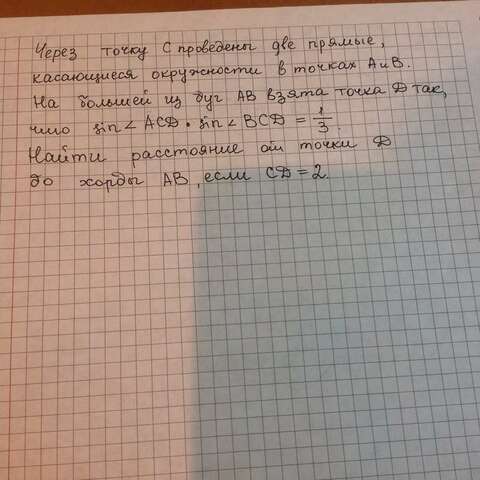 Через точку С проведены две прямые,
касающиеся окружности в точках А и В.
На большей из дуг АВ взята точка D так,
что sin∠ACD • sin∠BCD = 1/3.
Найти расстояние от точки D
до хорды АВ, если CD = 2.